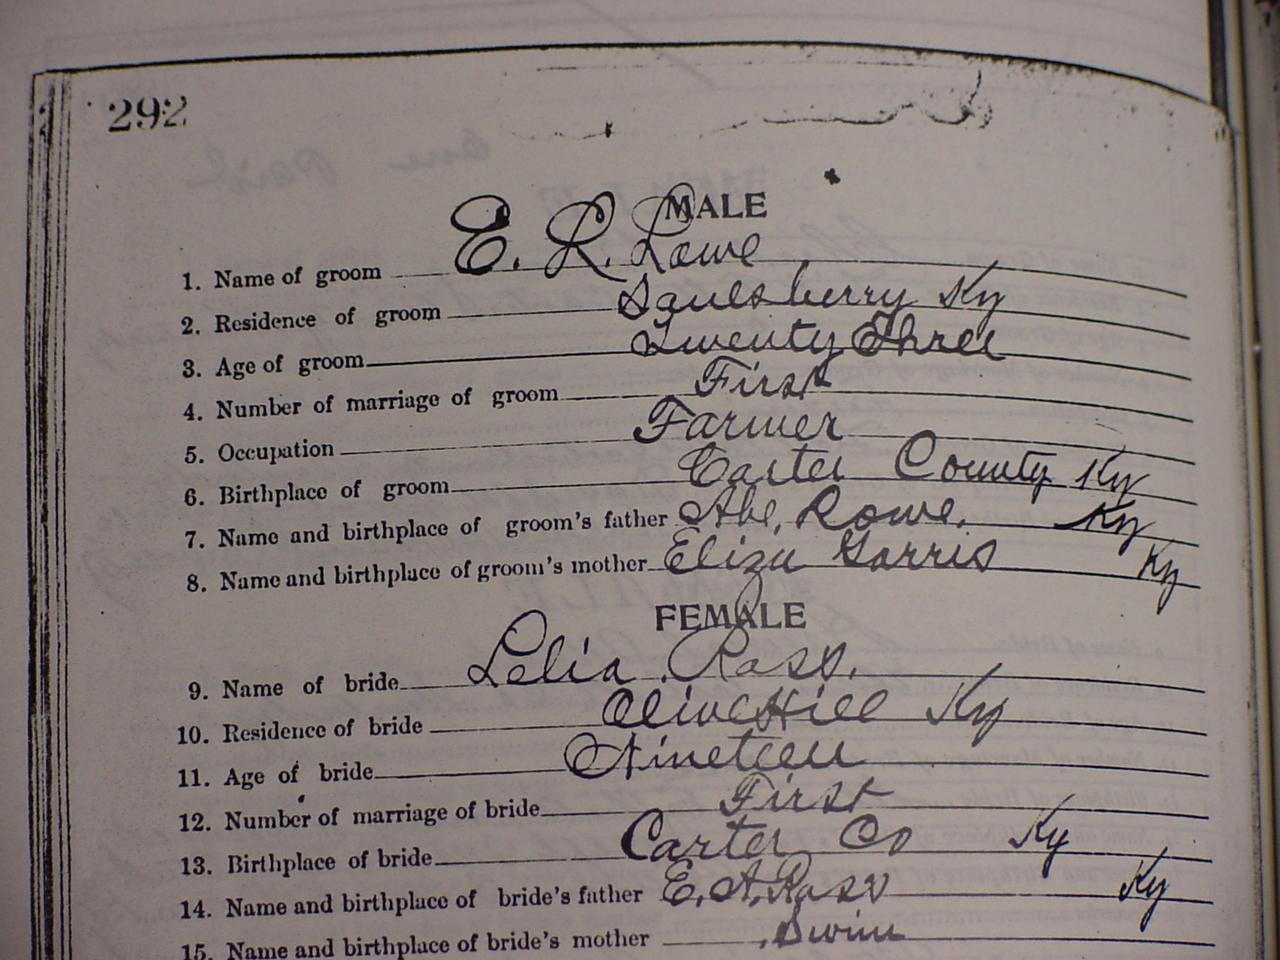 292
MALE
1. Name of groom E. R. Rowe
2. Residence of groom Saulsberry Ky
3. Age of groom Twenty Three
4. Number of marriage of groom First
5. Occupation Farmer
6. Birthplace of groom Carter County Ky
7. Name and birthplace of groom's father Abe, Rowe, Ky
8. Name and birthplace of groom's mother Eliza Garris Ky
FEMALE
9. Name of bride Lelia Ross.
10. Residence of bride Olive Hill Ky
11. Age of bride Nineteen
12. Number of marriage of bride First
13. Birthplace of bride Carter Co Ky
14. Name and birthplace of bride's father E. A. Ross Ky
15. Name and birthplace of bride's mother Swim